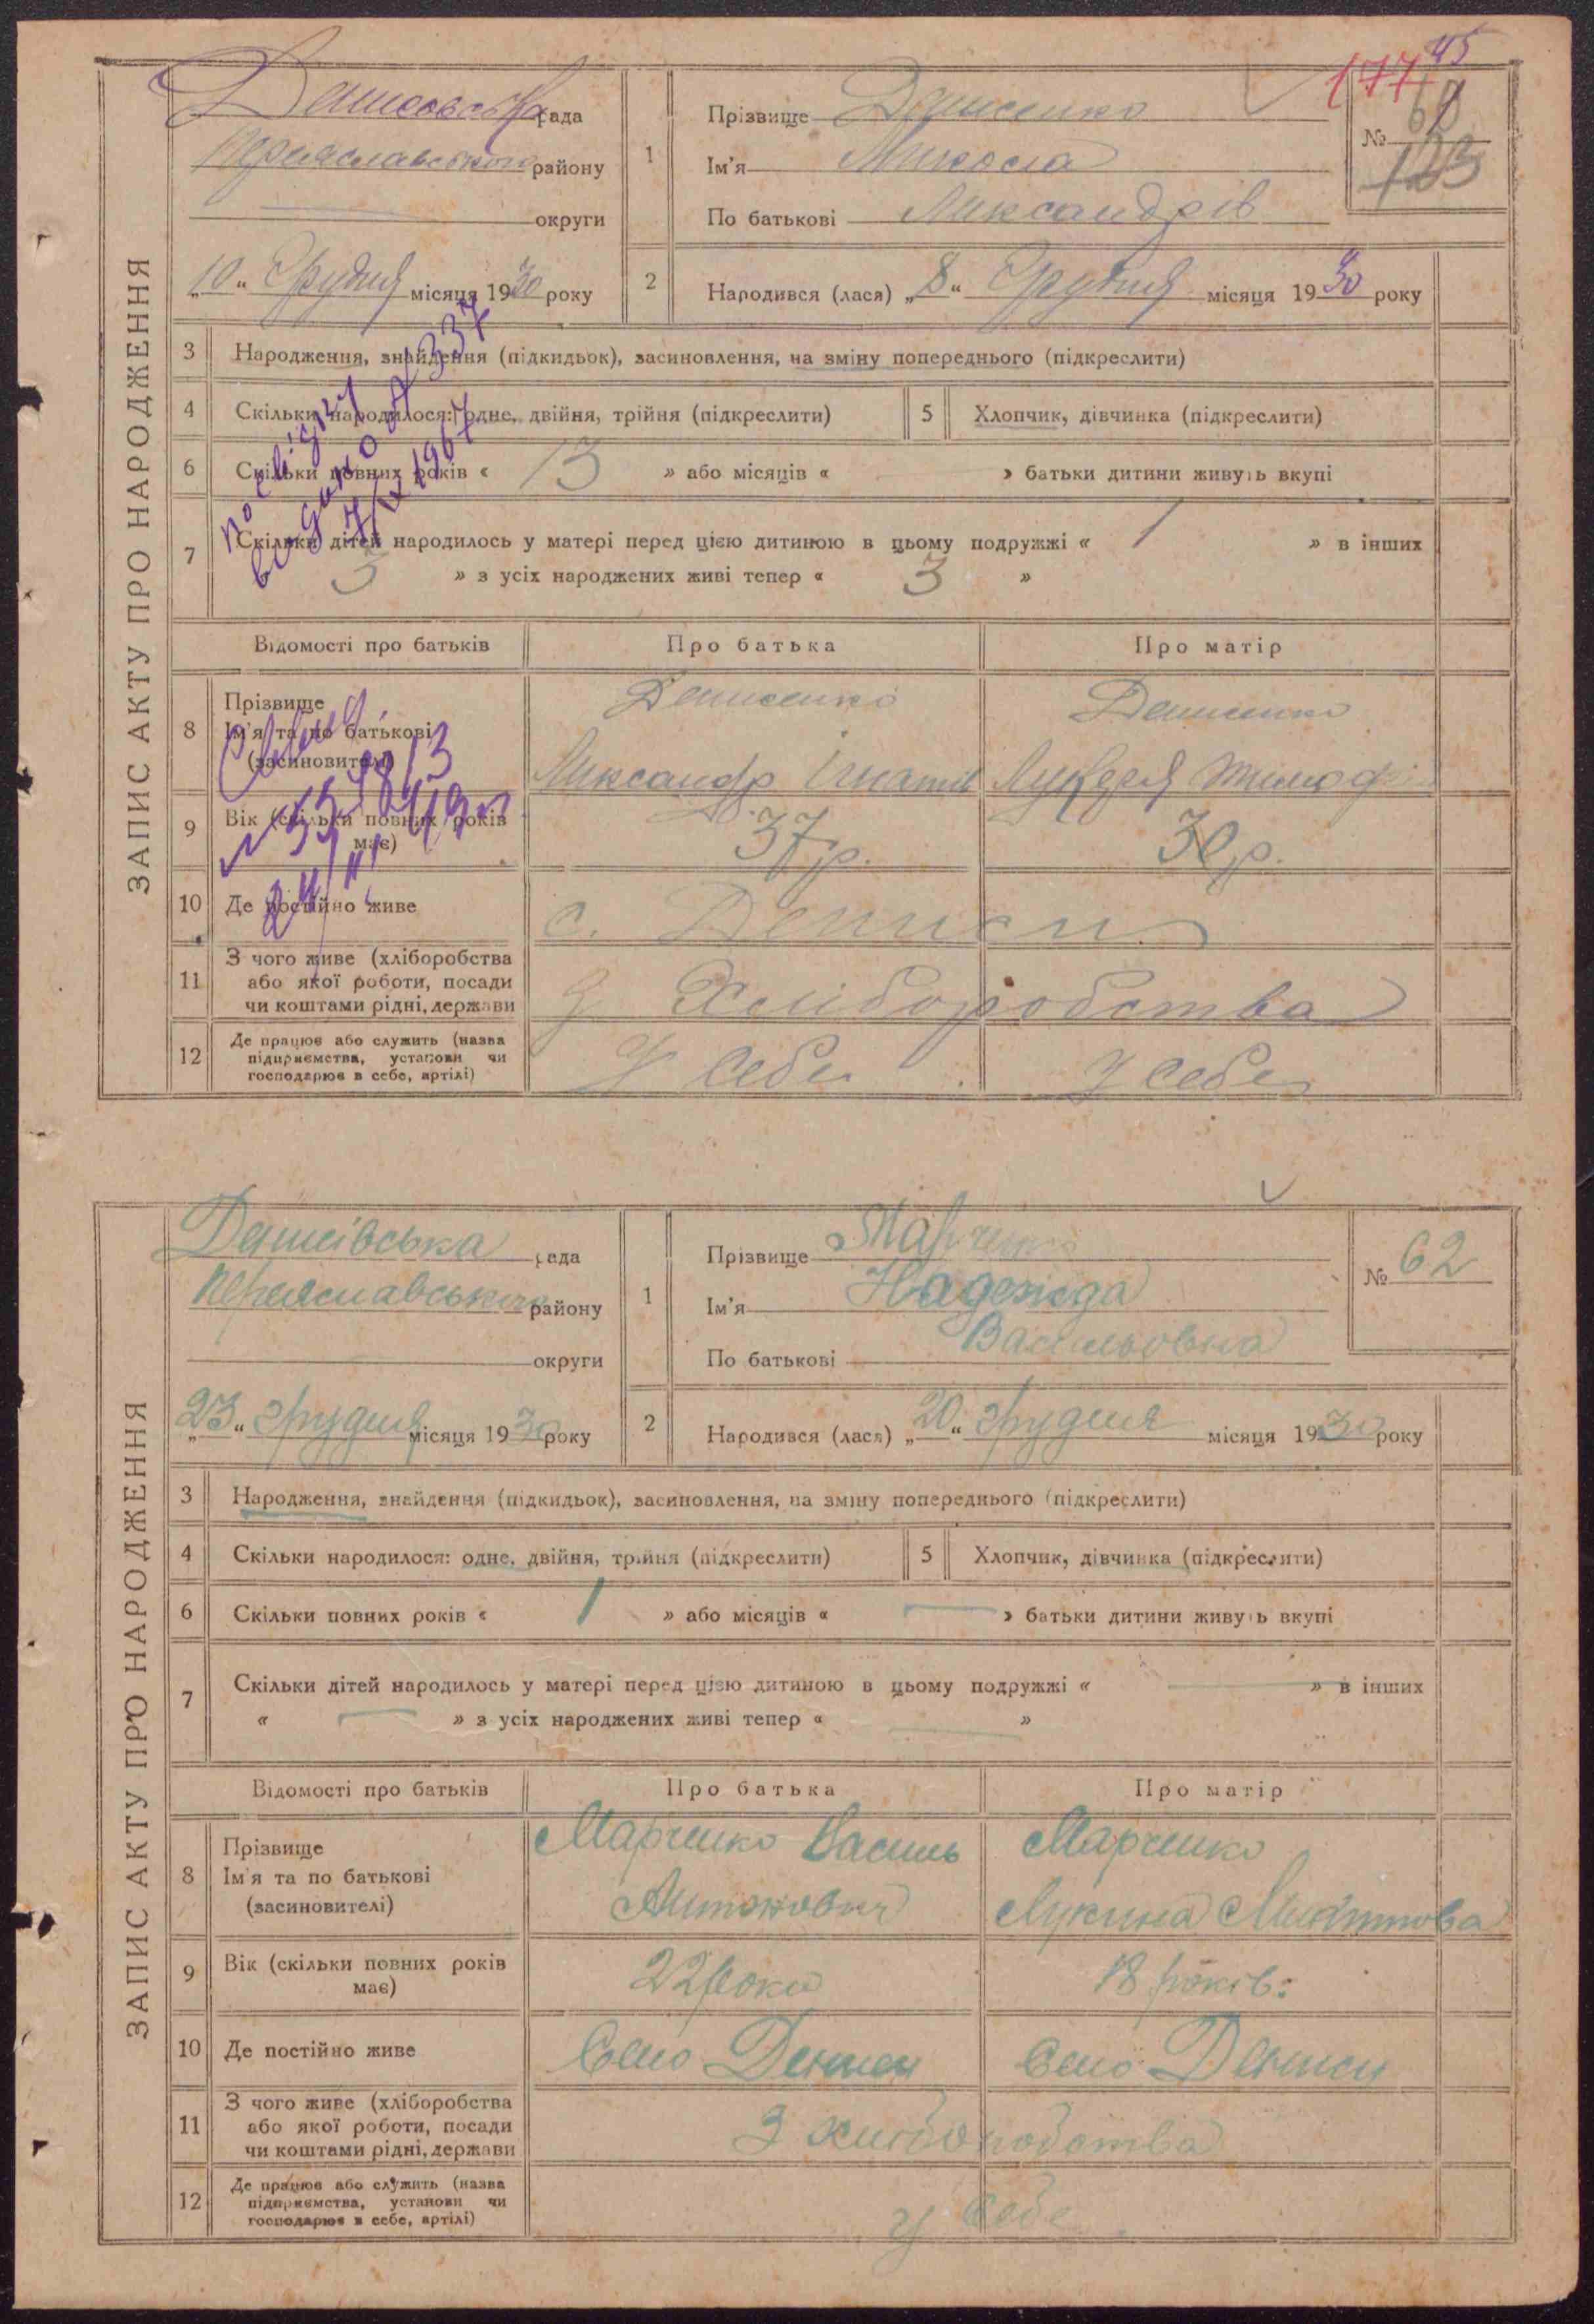 ЗАПИС АКТУ ПРО НАРОДЖЕННЯ
Денисовська рада
Переяславського району
округи
„10“ Грудня місяця 1930 року
1
Прізвище Денисенко
Ім'я Микола
По батькові Лиександрів
177 45
№ 61
123
2
Народився (лася) „8“ Грудня місяця 1930 року
3 Народження, знайдення (підкидьок), засиновлення, на зміну попереднього (підкреслити)
4 Скільки народилося: одне, двійня, трійня (підкреслити)
5 Хлопчик, дівчинка (підкреслити)
6 Скільки повних років « 13 » або місяців « » батьки дитини живуть вкупі
7 Скільки дітей народилось у матері перед цією дитиною в цьому подружжі « 1 » в інших
3 » з усіх народжених живі тепер « 3 »
1967
Відомості про батьків Про батька Про матір
8 Прізвище
Ім'я та по батькові
(засиновителі)
Денисенко
Лиександр Ігнатів
Денисенко
Лукерія Тимоф
9 Вік (скільки повних років має)
37 р.
30 р.
10 Де постійно живе
с. Дениси
11 З чого живе (хліборобства
або якої роботи, посади
чи коштами рідні, держави
З Хліборобства
12 Де працює або служить (назва
підприємства, установи чи
господарює в себе, артілі)
У себе
У себе
ЗАПИС АКТУ ПРО НАРОДЖЕННЯ
Денисівська рада
Переяславського району
округи
„23“ грудня місяця 1930 року
1
Прізвище Марченко
Ім'я Надежда
По батькові Васильовна
№ 62
2
Народився (лася) „20“ грудня місяця 1930 року
3 Народження, знайдення (підкидьок), засиновлення, на зміну попереднього (підкреслити)
4 Скільки народилося: одне, двійня, трійня (підкреслити)
5 Хлопчик, дівчинка (підкреслити)
6 Скільки повних років « 1 » або місяців « — » батьки дитини живуть вкупі
7 Скільки дітей народилось у матері перед цією дитиною в цьому подружжі « — » в інших
« — » з усіх народжених живі тепер « — »
Відомості про батьків Про батька Про матір
8 Прізвище
Ім'я та по батькові
(засиновителі)
Марченко Василь
Антонович
Марченко
Лукина
9 Вік (скільки повних років має)
22 роки
18 років:
10 Де постійно живе
Село Дениси
Село Дениси
11 З чого живе (хліборобства
або якої роботи, посади
чи коштами рідні, держави
З хліборобства
12 Де працює або служить (назва
підприємства, установи чи
господарює в себе, артілі)
у себе